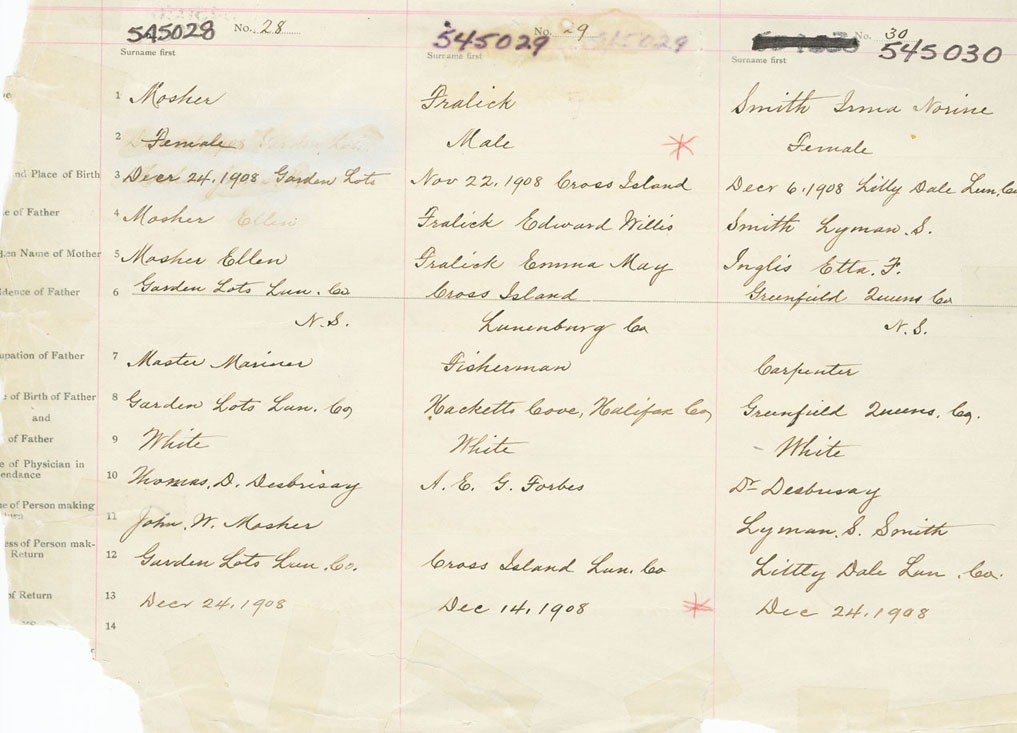 545028 No. 28
Surname first
1 Mosher
2 Female
3 Decr 24, 1908 Garden Lots
4 Mosher Ellen
5 Mosher Ellen
6 Garden Lots Lun. Co
N.S.
7 Master Mariner
8 Garden Lots Lun. Co,
9 White
10 Thomas. D. Desbrisay
11 John. W. Mosher
12 Garden Lots Lun. Co.
13 Decr 24, 1908
14
nd Place of Birth
e of Father
den Name of Mother
idence of Father
upation of Father
e of Birth of Father
and
of Father
e of Physician in
endance
ne of Person making
turn
ess of Person mak-
Return
of Return
545029 No. 29 545029
Surname first
Fralick
Male
Nov 22, 1908 Cross Island
Fralick Edward Willis
Fralick Emma May
Cross Island
Lunenburg Co
Fisherman
Hacketts Cove, Halifax Co,
White
A. E. G. Forbes
Cross Island Lun. Co
Dec 14, 1908
No. 30
545030
Surname first
Smith Irma Norine
Female
Decr 6, 1908 Litly Dale Lun. Co
Smith Lyman. S.
Inglis Etta. F.
Greenfield Queens Co
N.S.
Carpenter
Greenfield Queens. Co.
White
Dr Desbrisay
Lyman. S. Smith
Littly Dale Lun. Co.
Dec 24, 1908